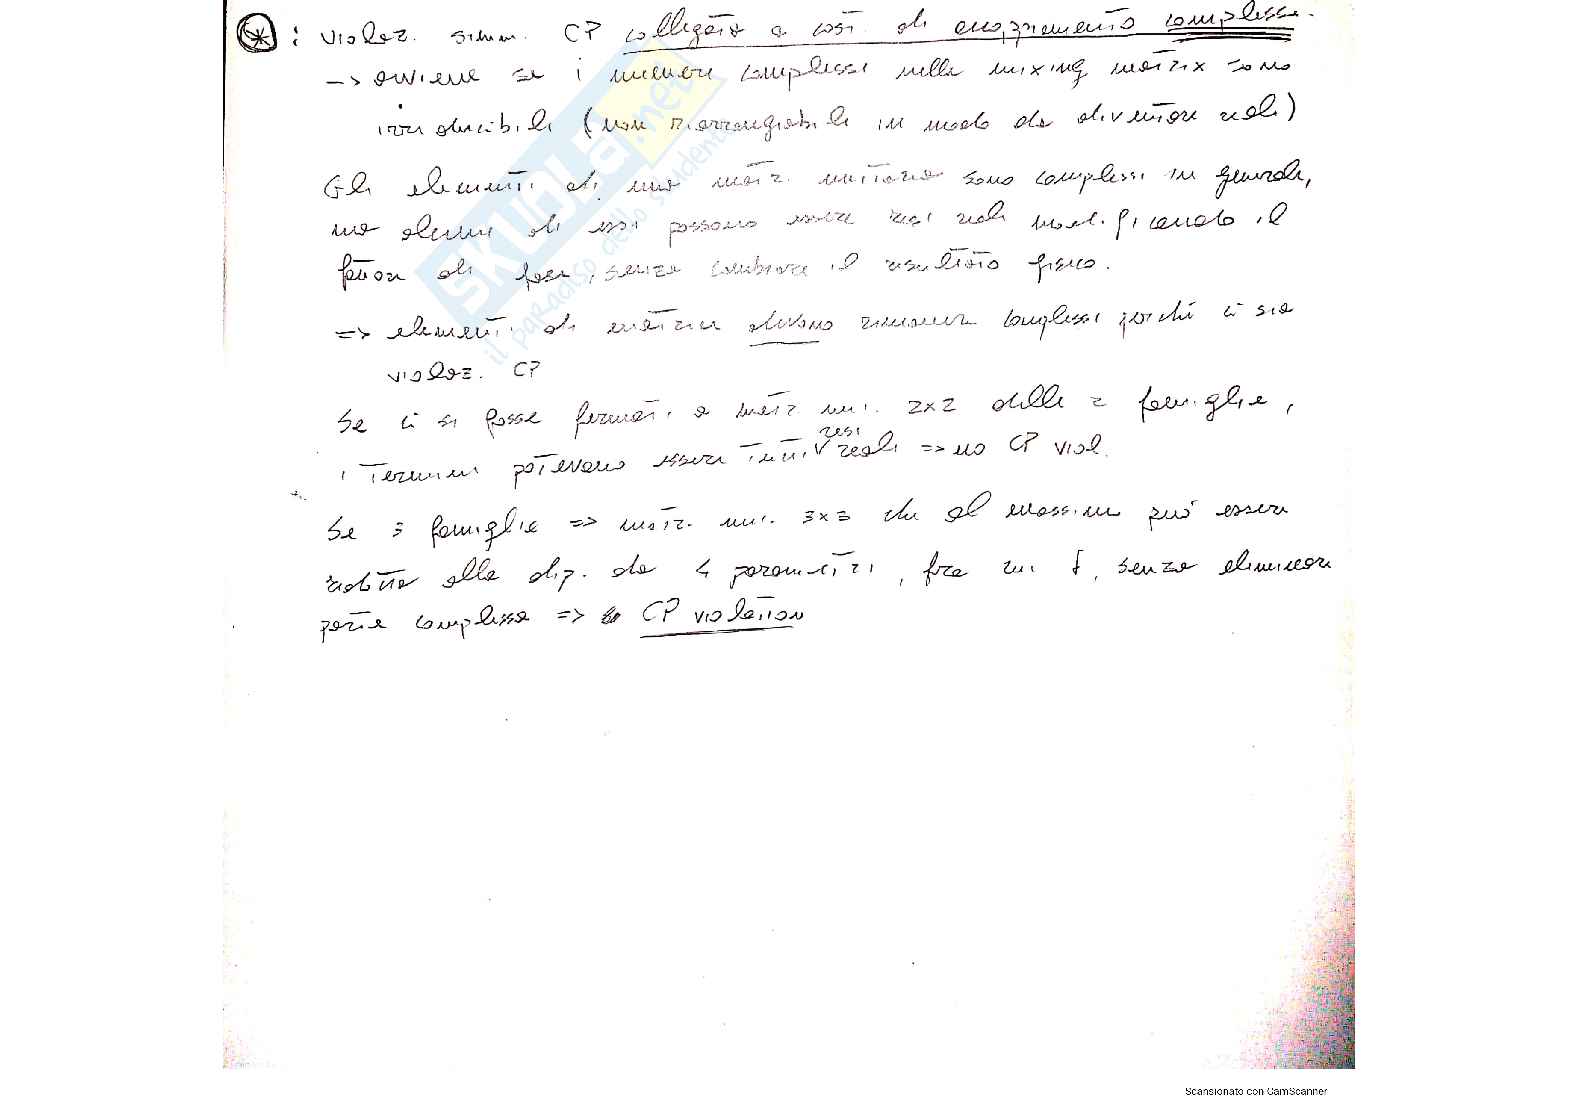 ⊛ : violaz. simm. CP collegata a cost. di accoppiamento complesse.
-> avviene se i numeri complessi nella mixing matrix sono
irriducibili (non riarrangiabili in modo da diventare reali)
Gli elementi di una matr. unitaria sono complessi in generale,
ma alcuni di essi possono essere resi reali modificando il
fattore di fase, senza cambiare il risultato fisico.
=> elementi di matrice devono rimanere complessi perché ci sia
violaz. CP
Se ci si fosse fermati a matr. uni. 2x2 delle 2 famiglie,
resi
i termini potevano essere tutti reali => no CP viol.
Se 3 famiglie => matr. uni. 3x3 che al massimo può essere
ridotta alla dip. da 4 parametri, fra cui δ, senza eliminare
parte complessa => CP violation
SKUOLA.net
il paradiso dello studente
Scansionato con CamScanner